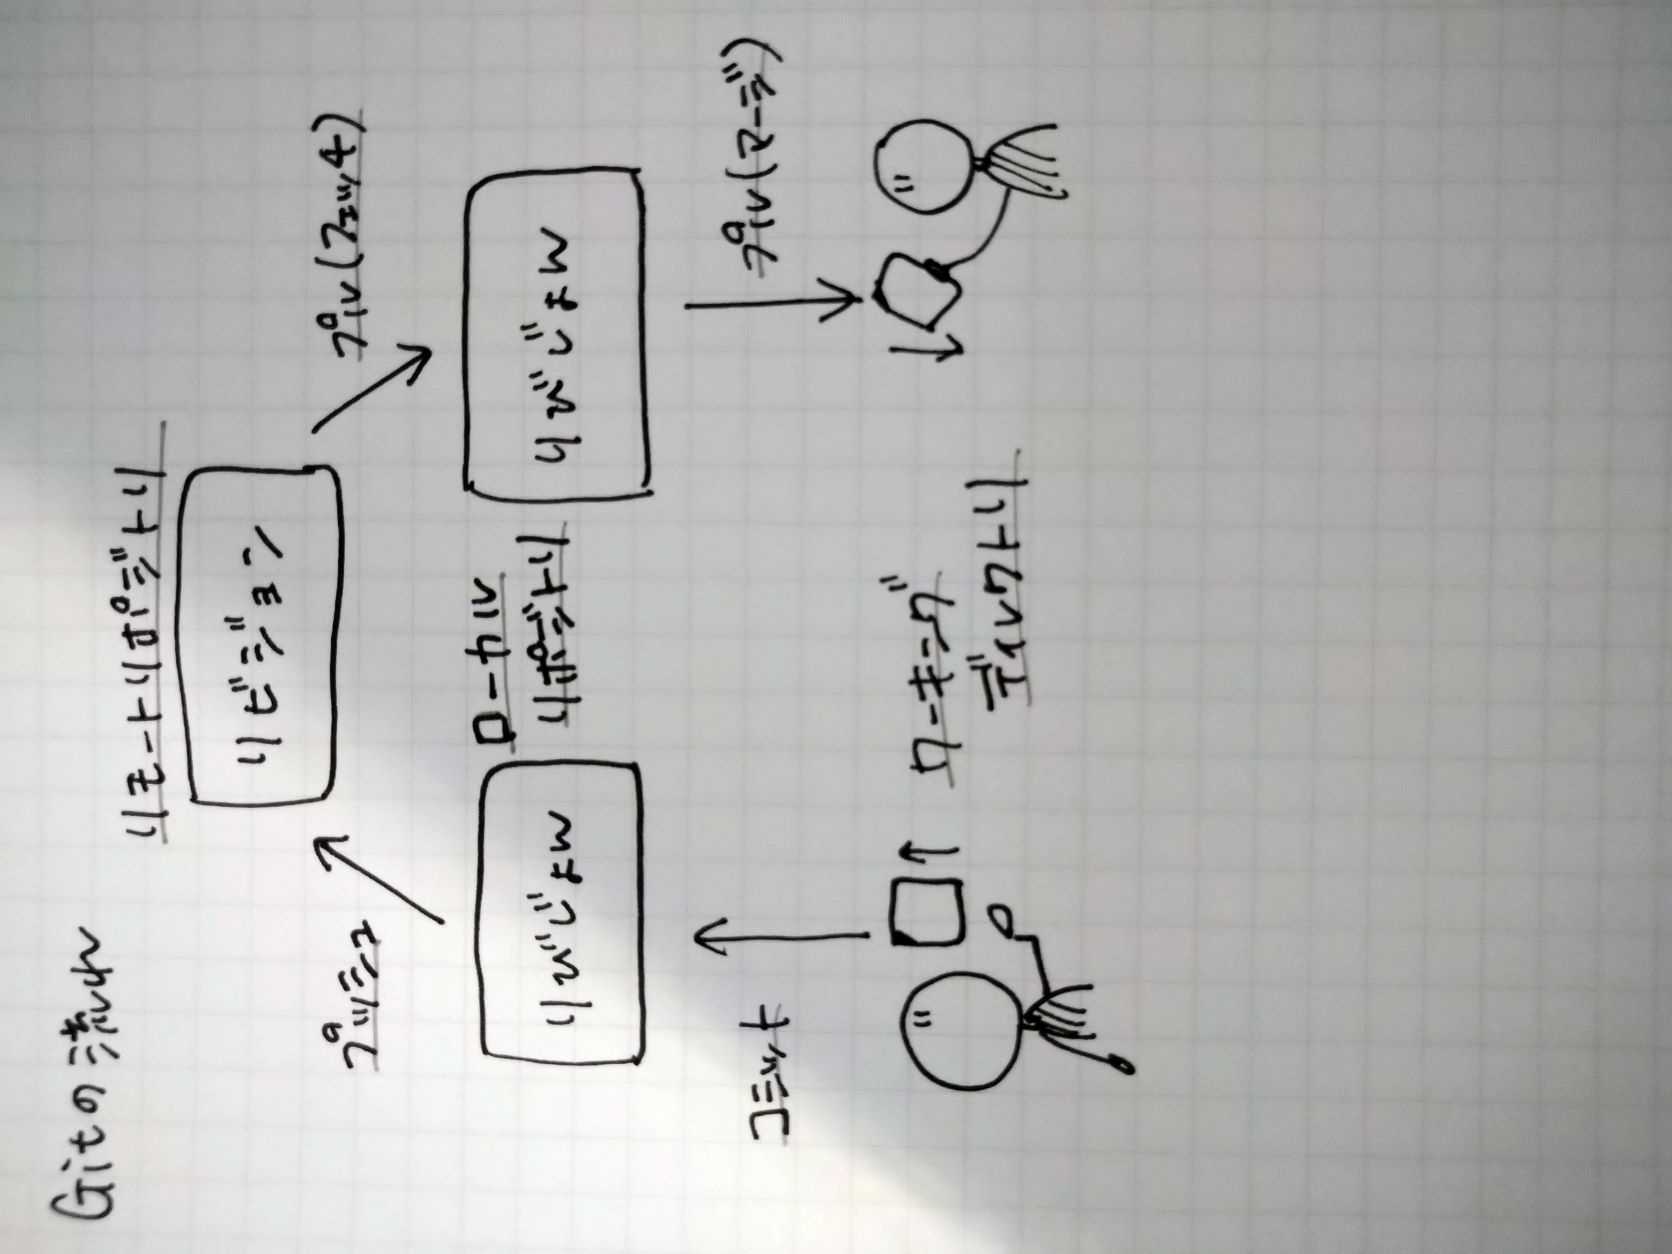 Gitの流れ
リモートリポジトリ
リビジョン
プッシュ
プル(フェッチ)
ローカル
リポジトリ
りびじょん
りびじょん
コミット
プル(マージ)
ワーキング
ディレクトリ